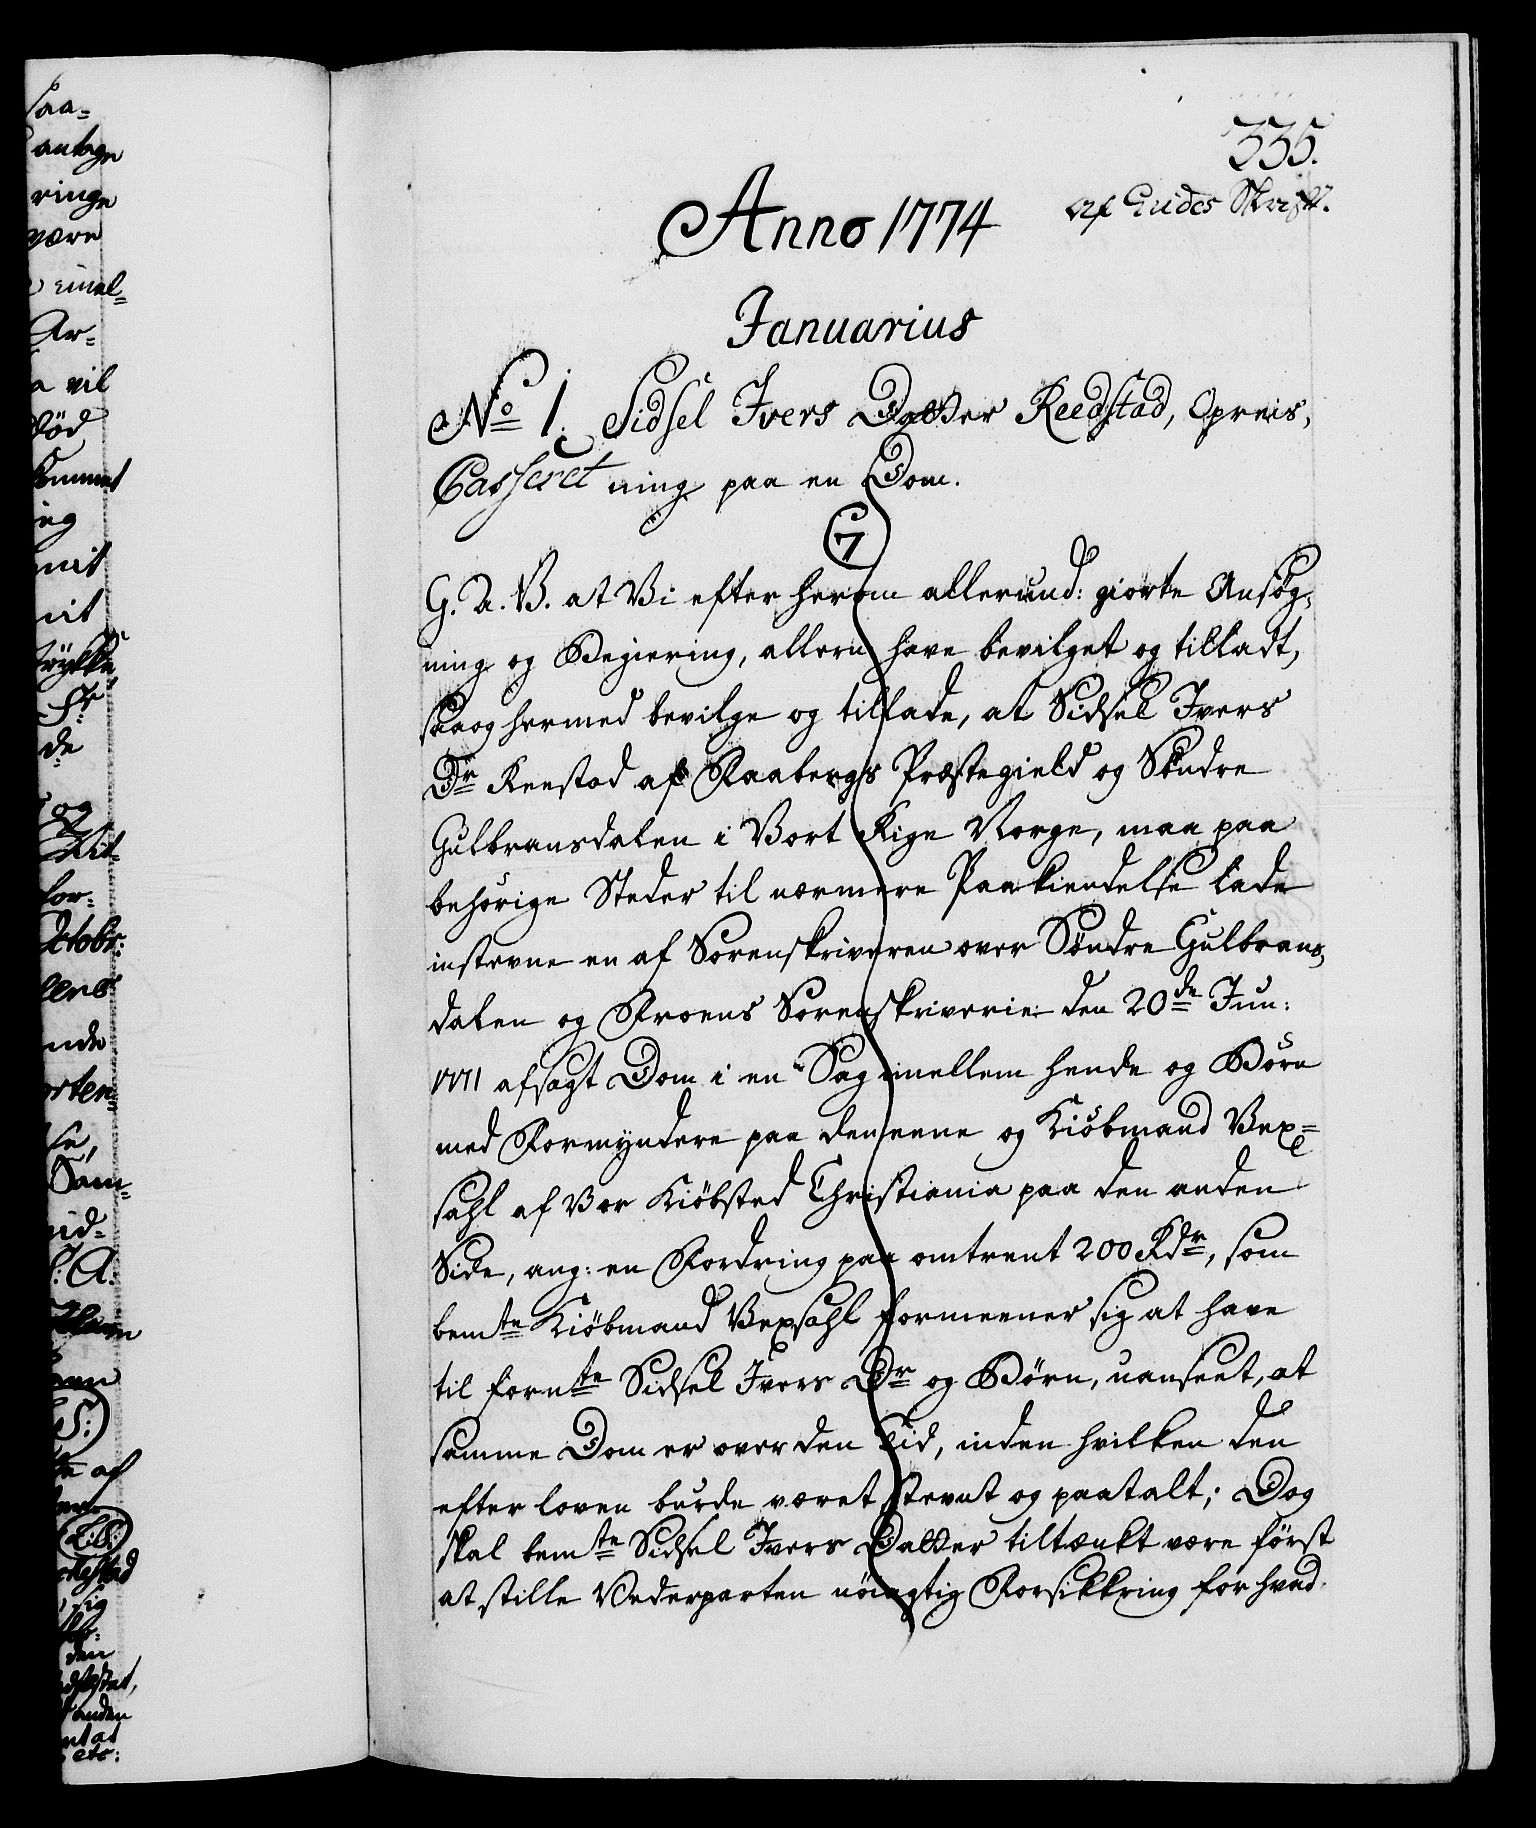 335.
Af Eudes Skrift.
Anno 1774
Januarius
No 1. Sidsel Ivers Datter Reedstad, Opreis,
Casseret ning paa en Dom.
7
G. A. V. at Vi efter herom allerund: giorte Ansøg,
ning og Begiering, allern have bevilget og tilladt,
saa og hermed bevilge og tillade, at Sidsel Ivers
Dr Reestad af Faabergs Præstegield og Søndre
Gulbransdalen i Vort Rige Norge, maa paa
behørige Steder til nærmere Paakiendelse lade
instevne en af Sorenskriveren over Søndre Gulbrans,
dalen og Froens Sorenskriverie den 20de Jun:
1771 afsagt Dom i en Sag imellem hende og Børn
med Formyndere paa den eene og Kiøbmand Vex=
sahl af Vor Kiøbsted Christiania paa den anden
Side, ang: en Fordring paa omtrent 200 Rdr, som
bemte Kiøbmand Vexsahl formeener sig at have
til fornte Sidsel Ivers Dr og Børn, uanseet, at
samme Dom er over den Tid, inden hvilken den
efter loven burde været stevnt og paatalt; Dog
skal bemte Sidsel Ivers Datter tiltænkt være først
at stille Vederparten nøiagtig Forsikkring for hvad
saa=
antage
ringe
være
Ar=
vil
ing
mit
de
og
Octobr:
Sam=
af
den
anden
etc: